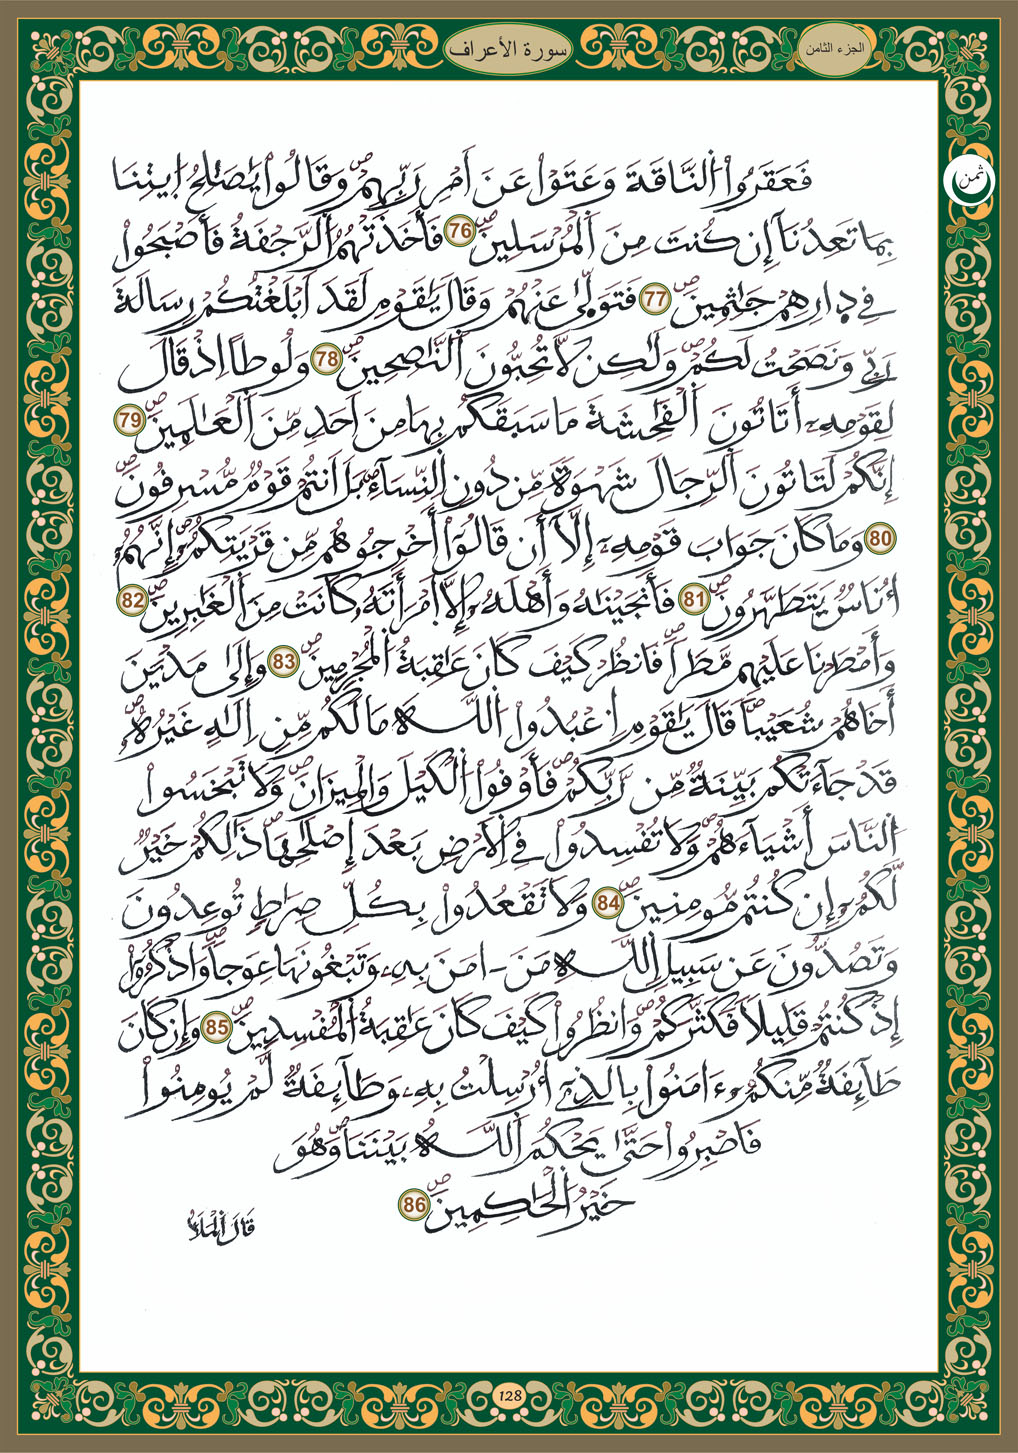 الجزء الثامن
سورة الأعراف
ثمن
فَعَقَرُوا۟ اُ۬لنَّاقَةَ وَعَتَوْا۟ عَنَ اَمْرِ رَبِّهِمْۖ وَقَالُوا۟ يَٰصَٰلِحُ اُ۪يتِنَا
بِمَا تَعِدُنَآ إِن كُنتَ مِنَ اَ۬لْمُرْسَلِينَۖ 76 فَأَخَذَتْهُمُ اُ۬لرَّجْفَةُ فَأَصْبَحُوا۟
فِے دِارِهِمْ جَٰثِمِينَۖ 77 فَتَوَلّ۪ىٰ عَنْهُمْ وَقَالَ يَٰقَوْمِ لَقَدَ اَبْلَغْتُكُمْ رِسَالَةَ
رَبِّے وَنَصَحْتُ لَكُمْۖ وَلَٰكِن لَّا تُحِبُّونَ اَ۬لنَّٰصِحِينَۖ 78 وَلُوطاً اِذْ قَالَ
لِقَوْمِهِۦٓ أَتَاتُونَ اَ۬لْفَٰحِشَةَ مَا سَبَقَكُم بِهَا مِنَ اَحَدٖ مِّنَ اَ۬لْعَٰلَمِينَۖ 79
إِنَّكُمْ لَتَاتُونَ اَ۬لرِّجَالَ شَهْوَةٗ مِّن دُونِ اِ۬لنِّسَآءِۖ بَلَ اَنتُمْ قَوْمٞ مُّسْرِفُونَۖ
80 وَمَا كَانَ جَوَابَ قَوْمِهِۦٓ إِلَّآ أَن قَالُوٓا۟ أَخْرِجُوهُم مِّن قَرْيَتِكُمُۥٓۖ إِنَّهُمُۥٓ
أُنَاسٞ يَتَطَهَّرُونَۖ 81 فَأَنجَيْنَٰهُ وَأَهْلَهُۥٓ إِلَّا اَ۪مْرَأَتَهُۥ كَانَتْ مِنَ اَ۬لْغَٰبِرِينَۖ 82
وَأَمْطَرْنَا عَلَيْهِم مَّطَراٗۖ فَانظُرْ كَيْفَ كَانَ عَٰقِبَةُ اُ۬لْمُجْرِمِينَۖ 83 وَإِلَىٰ مَدْيَنَ
أَخَاهُمْ شُعَيْباٗۖ قَالَ يَٰقَوْمِ اِ۟عْبُدُوا۟ اُ۬للَّهَ مَا لَكُم مِّنِ اِلَٰهٍ غَيْرُهُۥۖ
قَدْ جَآءَتْكُم بَيِّنَةٞ مِّن رَّبِّكُمْۖ فَأَوْفُوا۟ اُ۬لْكَيْلَ وَالْمِيزَانَۖ وَلَا تَبْخَسُوا۟
اُ۬لنَّاسَ أَشْيَآءَهُمْۖ وَلَا تُفْسِدُوا۟ فِے اِ۬لَارْضِ بَعْدَ إِصْلَٰحِهَاۖ ذَٰلِكُمْ خَيْرٞ
لَّكُمُۥٓ إِن كُنتُم مُّومِنِينَۖ 84 وَلَا تَقْعُدُوا۟ بِكُلِّ صِرَٰطٖ تُوعِدُونَ
وَتَصُدُّونَ عَن سَبِيلِ اِ۬للَّهِ مَنَ ـ اٰمَنَ بِهِۦ وَتَبْغُونَهَا عِوَجاٗۖ وَاذْكُرُوٓا۟
إِذْ كُنتُمْ قَلِيلاٗ فَكَثَّرَكُمْۖ وَانظُرُوا۟ كَيْفَ كَانَ عَٰقِبَةُ اُ۬لْمُفْسِدِينَۖ 85 وَإِن كَانَ
طَآئِفَةٞ مِّنكُمُۥٓ ءَامَنُوا۟ بِالذِےٓ أُرْسِلْتُ بِهِۦ وَطَآئِفَةٞ لَّمْ يُومِنُوا۟
فَاصْبِرُوا۟ حَتَّىٰ يَحْكُمَ اَ۬للَّهُ بَيْنَنَاۖ وَهُوَ
خَيْرُ اُ۬لْحَٰكِمِينَۖ 86
قَالَ اَ۬لْمَلَأُ
128